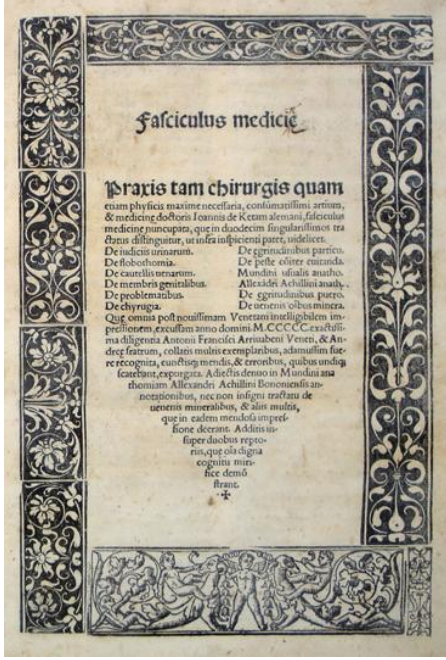 Fasciculus medicie
Praxis tam chirurgis quam
etiam physicis maxime necessaria, consũmatissimi artium,
& medicinę doctoris Ioannis de Ketam alemani, fasciculus
medicinę nuncupata, que in duodecim singularissimos tra
ctatus distinguitur, ut infra inspicienti patet, uidelicet.
De iudiciis urinarum. De egritudinibus particu.
De flobothomia. De peste cõiter euitanda.
De cautellis uenarum. Mundini usualis anatho.
De membris genitalibus. Allexãdri Achillini anath.
De problematibus. De egritudinibus puero.
De chyrugia. De uenenis oibus minera.
Que omnia post nouissimam Venetam intelligibilem im
pressionem, excussam anno domini M.CCCCC. exactissi
ma diligentia Antonii Francisci Arriuabeni Veneti, & An
dreę fratrum, collatis multis exemplaribus, adamussim fue
re recognita, cunctisq; mendis, & erroribus, quibus undiq;
scatebant, expurgata. Adiectis denuo in Mundini ana
thomiam Allexandri Achillini Bononensis an-
notationibus, nec non insigni tractatu de
uenenis mineralibus, & aliis multis,
que in eadem mendosa impres-
sione deerant. Additis in-
super duobus repto-
riis, que oia digna
cognitu miri-
fice demõ
strant.